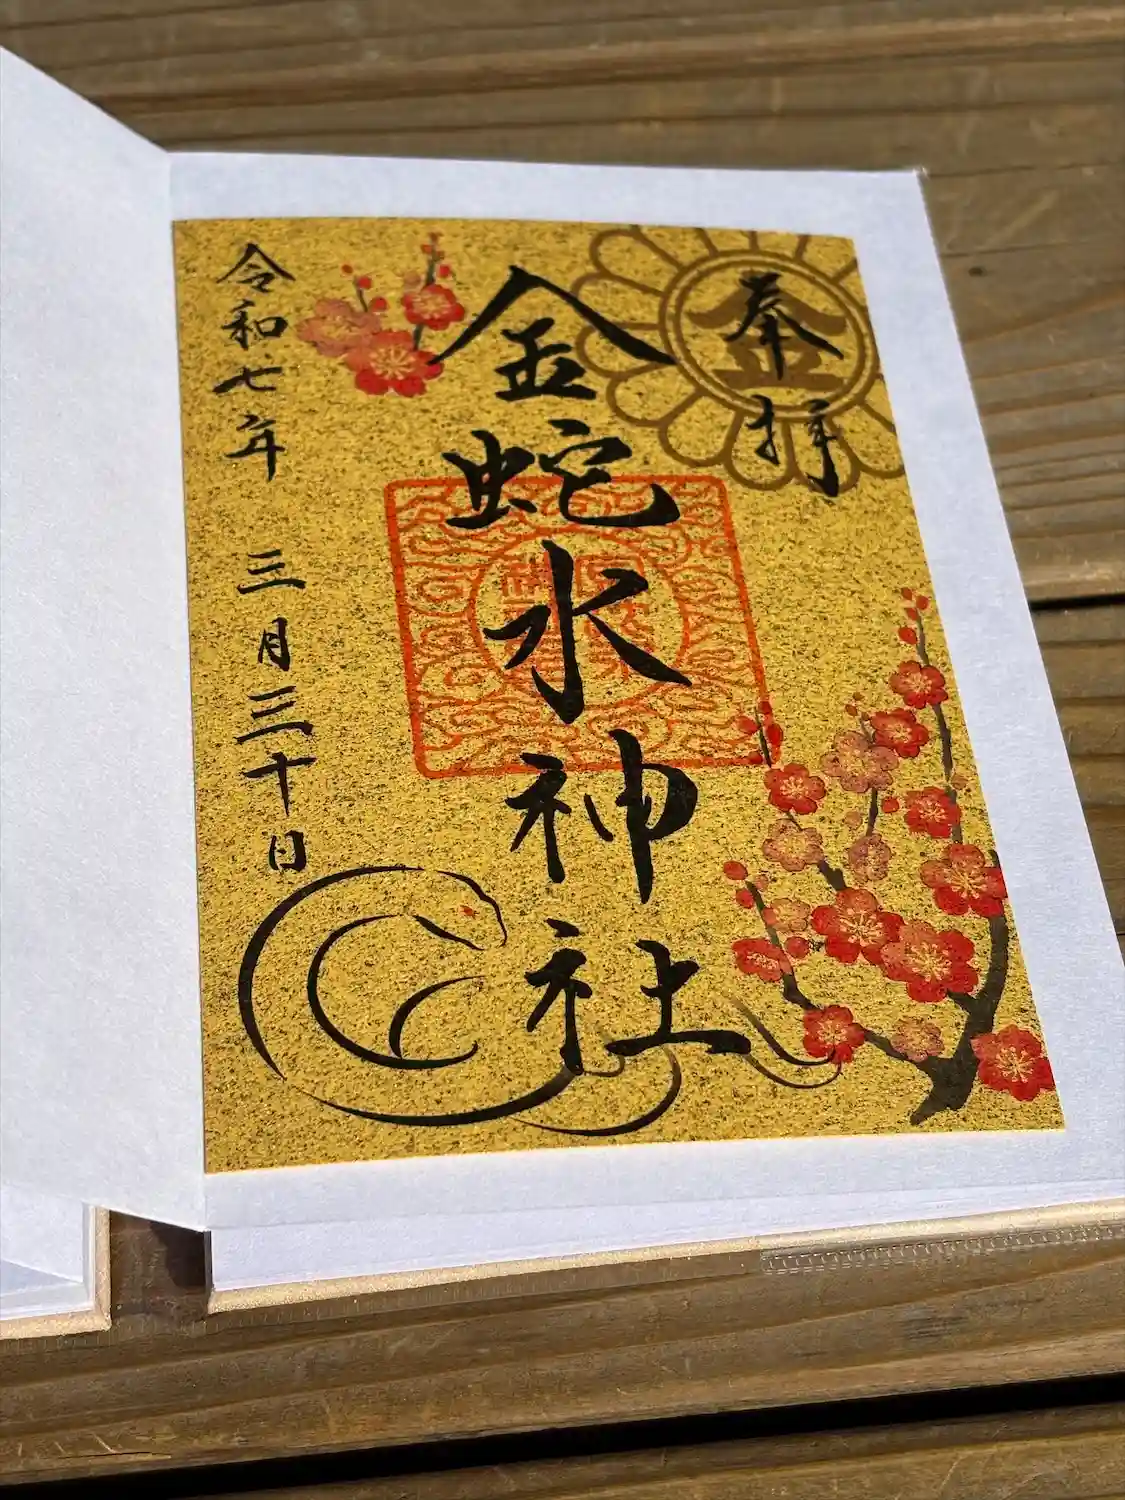 奉拝
金
金蛇水神社
令和七年 三月三十日